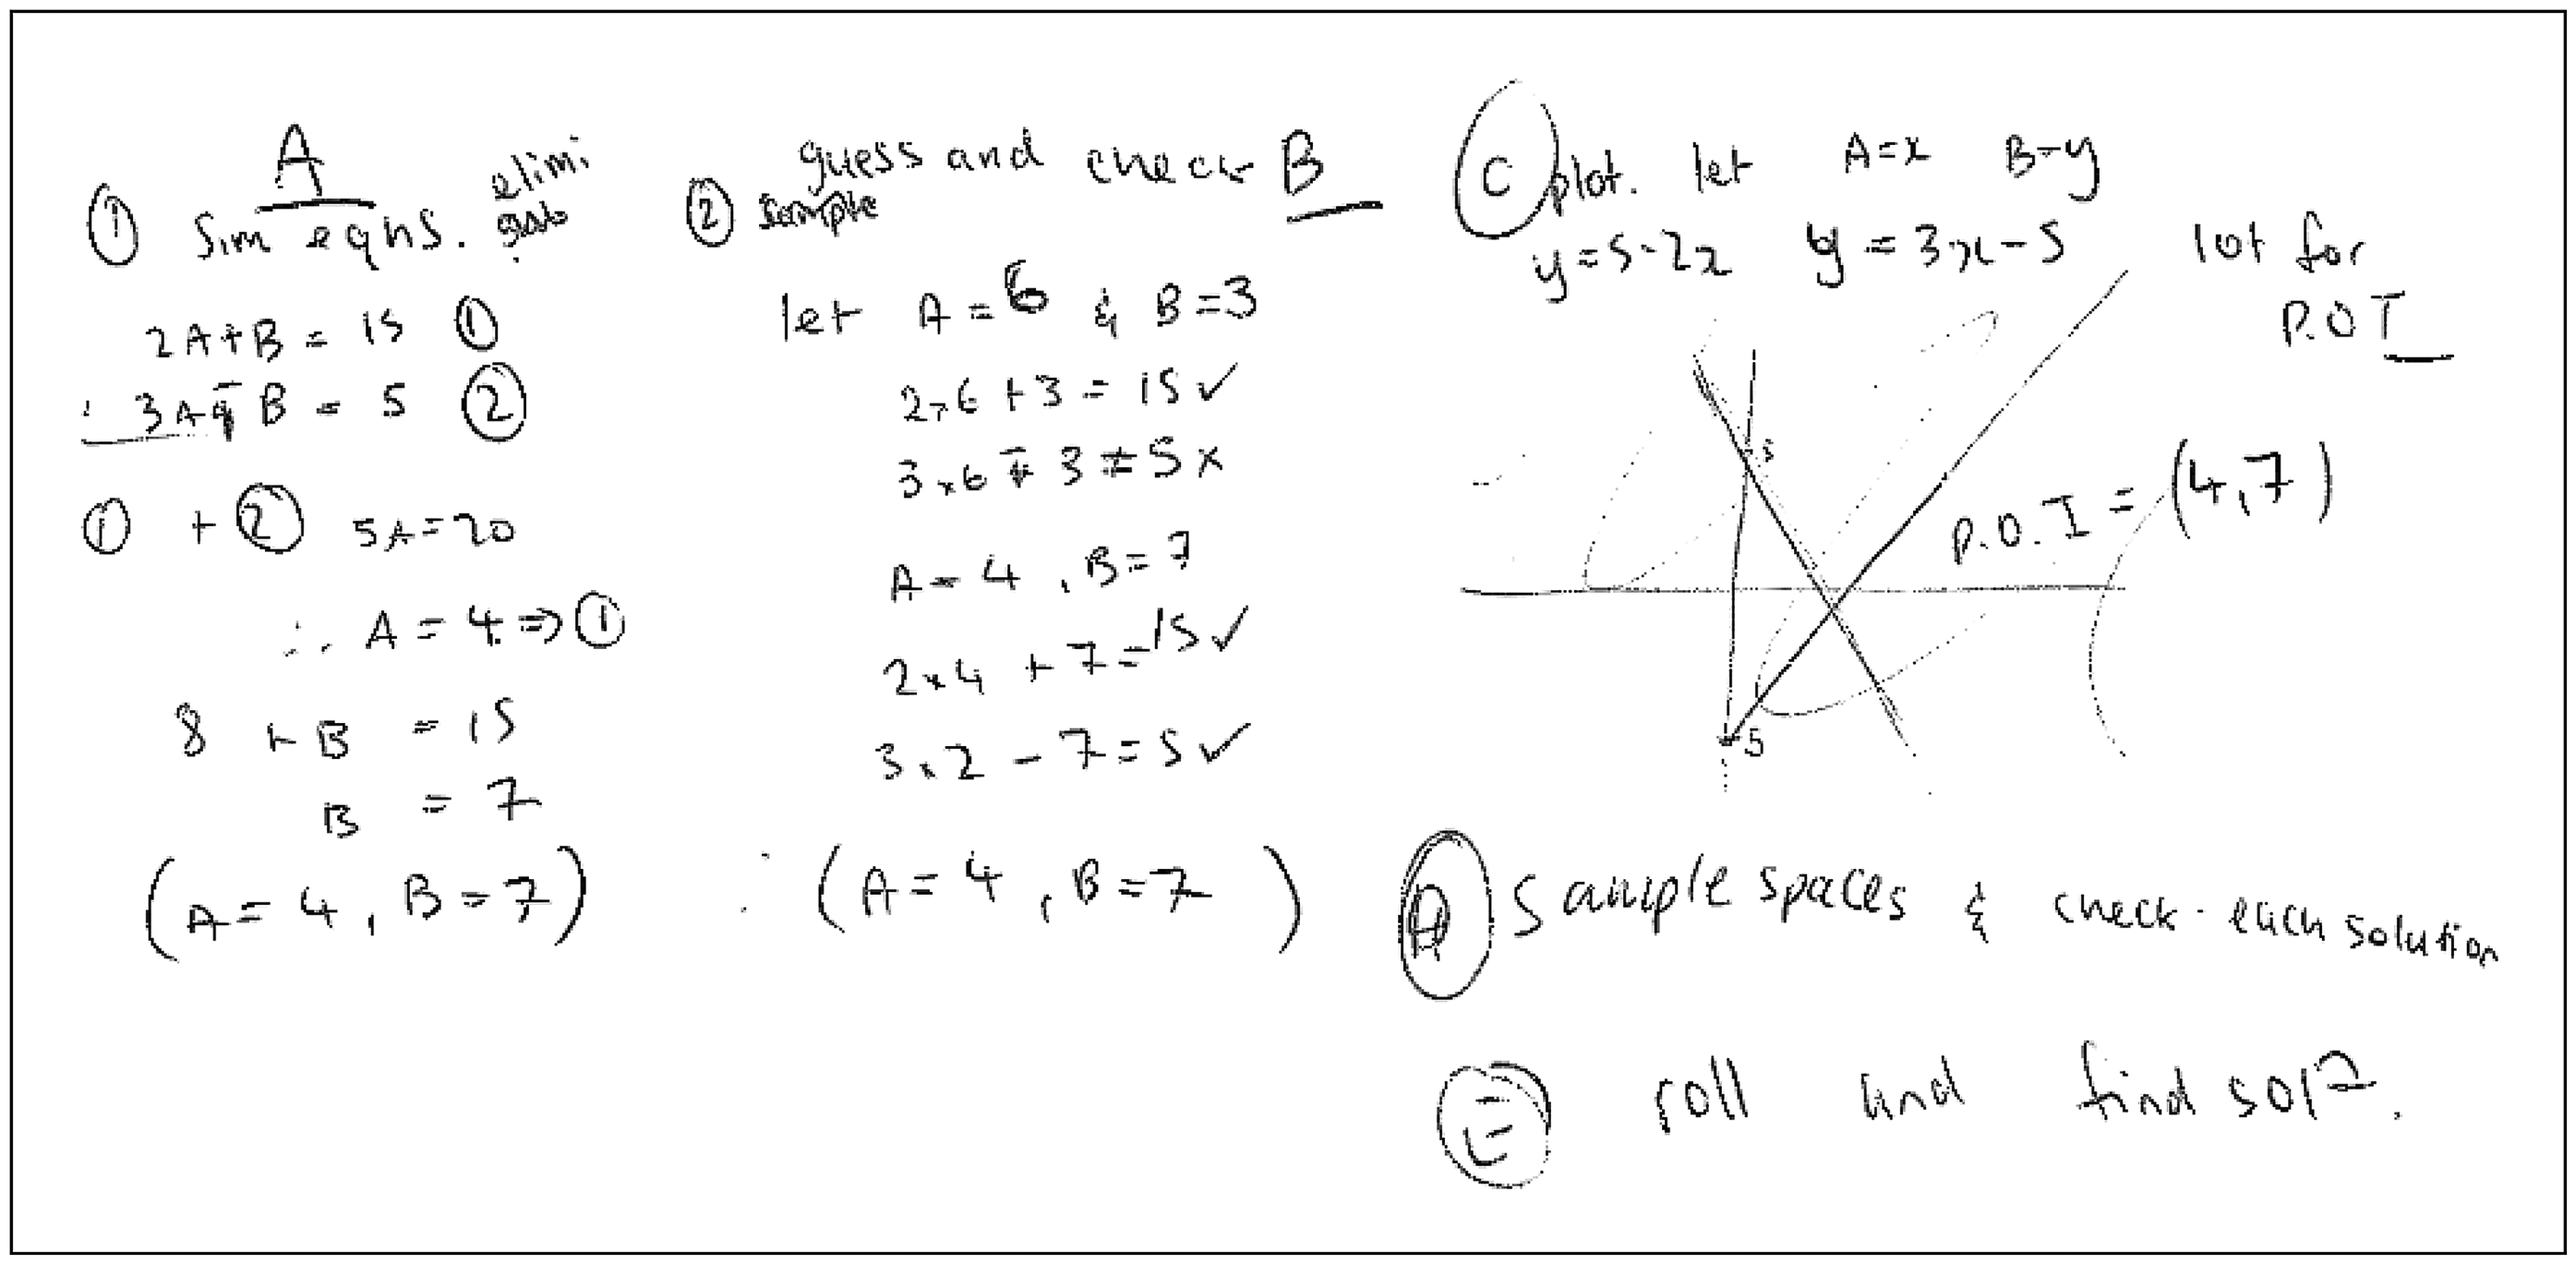 A
① Sim eqns. elimi
2A+B = 15 ①
3A - B = 5 ②
① + ② 5A=20
∴ A = 4 ⇒ ①
8 + B = 15
B = 7
(A = 4, B = 7)
guess and check B
② Sample
let A = 6 & B = 3
2×6 + 3 = 15 ✓
3×6 - 3 ≠ 5 ×
A = 4, B = 7
2×4 + 7 = 15 ✓
3×2 - 7 = 5 ✓
∴ (A = 4, B = 7)
C plot. let A=x B=y
y=5-2x y = 3x-5
lot for
P.O.I
5
-5
P.O.I = (4,7)
D Sample spaces & check each solution
E roll and find sol?.